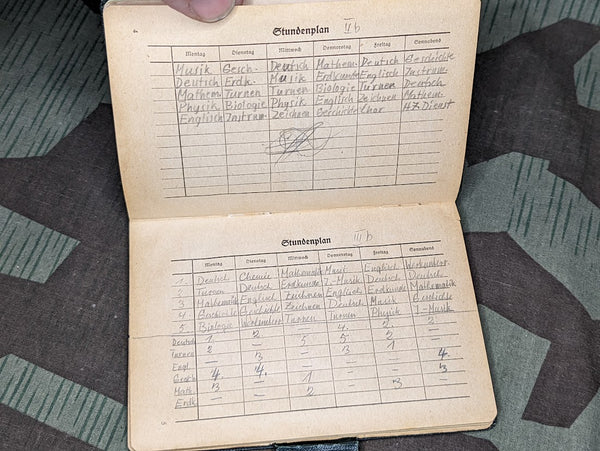 4
Stundenplan II b
Montag Dienstag Mittwoch Donnerstag Freitag Sonnabend
Musik Gesch. Deutsch Mathem. Deutsch Geschichte
Deutsch Erdk. Musik Erdkunde Englisch Instrum.
Mathem. Turnen Turnen Biologie Turnen Deutsch
Physik Biologie Physik Englisch Zeichnen Mathem.
Englisch Instrum. Zeichnen Geschichte Chor HJ. Dienst
Stundenplan III b
Montag Dienstag Mittwoch Donnerstag Freitag Sonnabend
1. Deutsch Chemie Mathematik Musik Englisch
2. Turnen Deutsch Erdkunde J.-Musik Deutsch Deutsch
3 Mathematik Englisch Zeichnen Englisch Erdkunde Mathematik
4 Geschichte Geschichte Zeichnen Deutsch Musik Geschichte
5. Biologie Turnen Turnen Physik J.-Musik
Deutsch 1 2 – 4 2 2
Turnen 2 – 5 5 – –
Engl. – 3 – 3 1 –
Gesch. 4 – – – – 4
Math. 3 4 1 – – 3
Erdk. – – 2 – 3 –
5